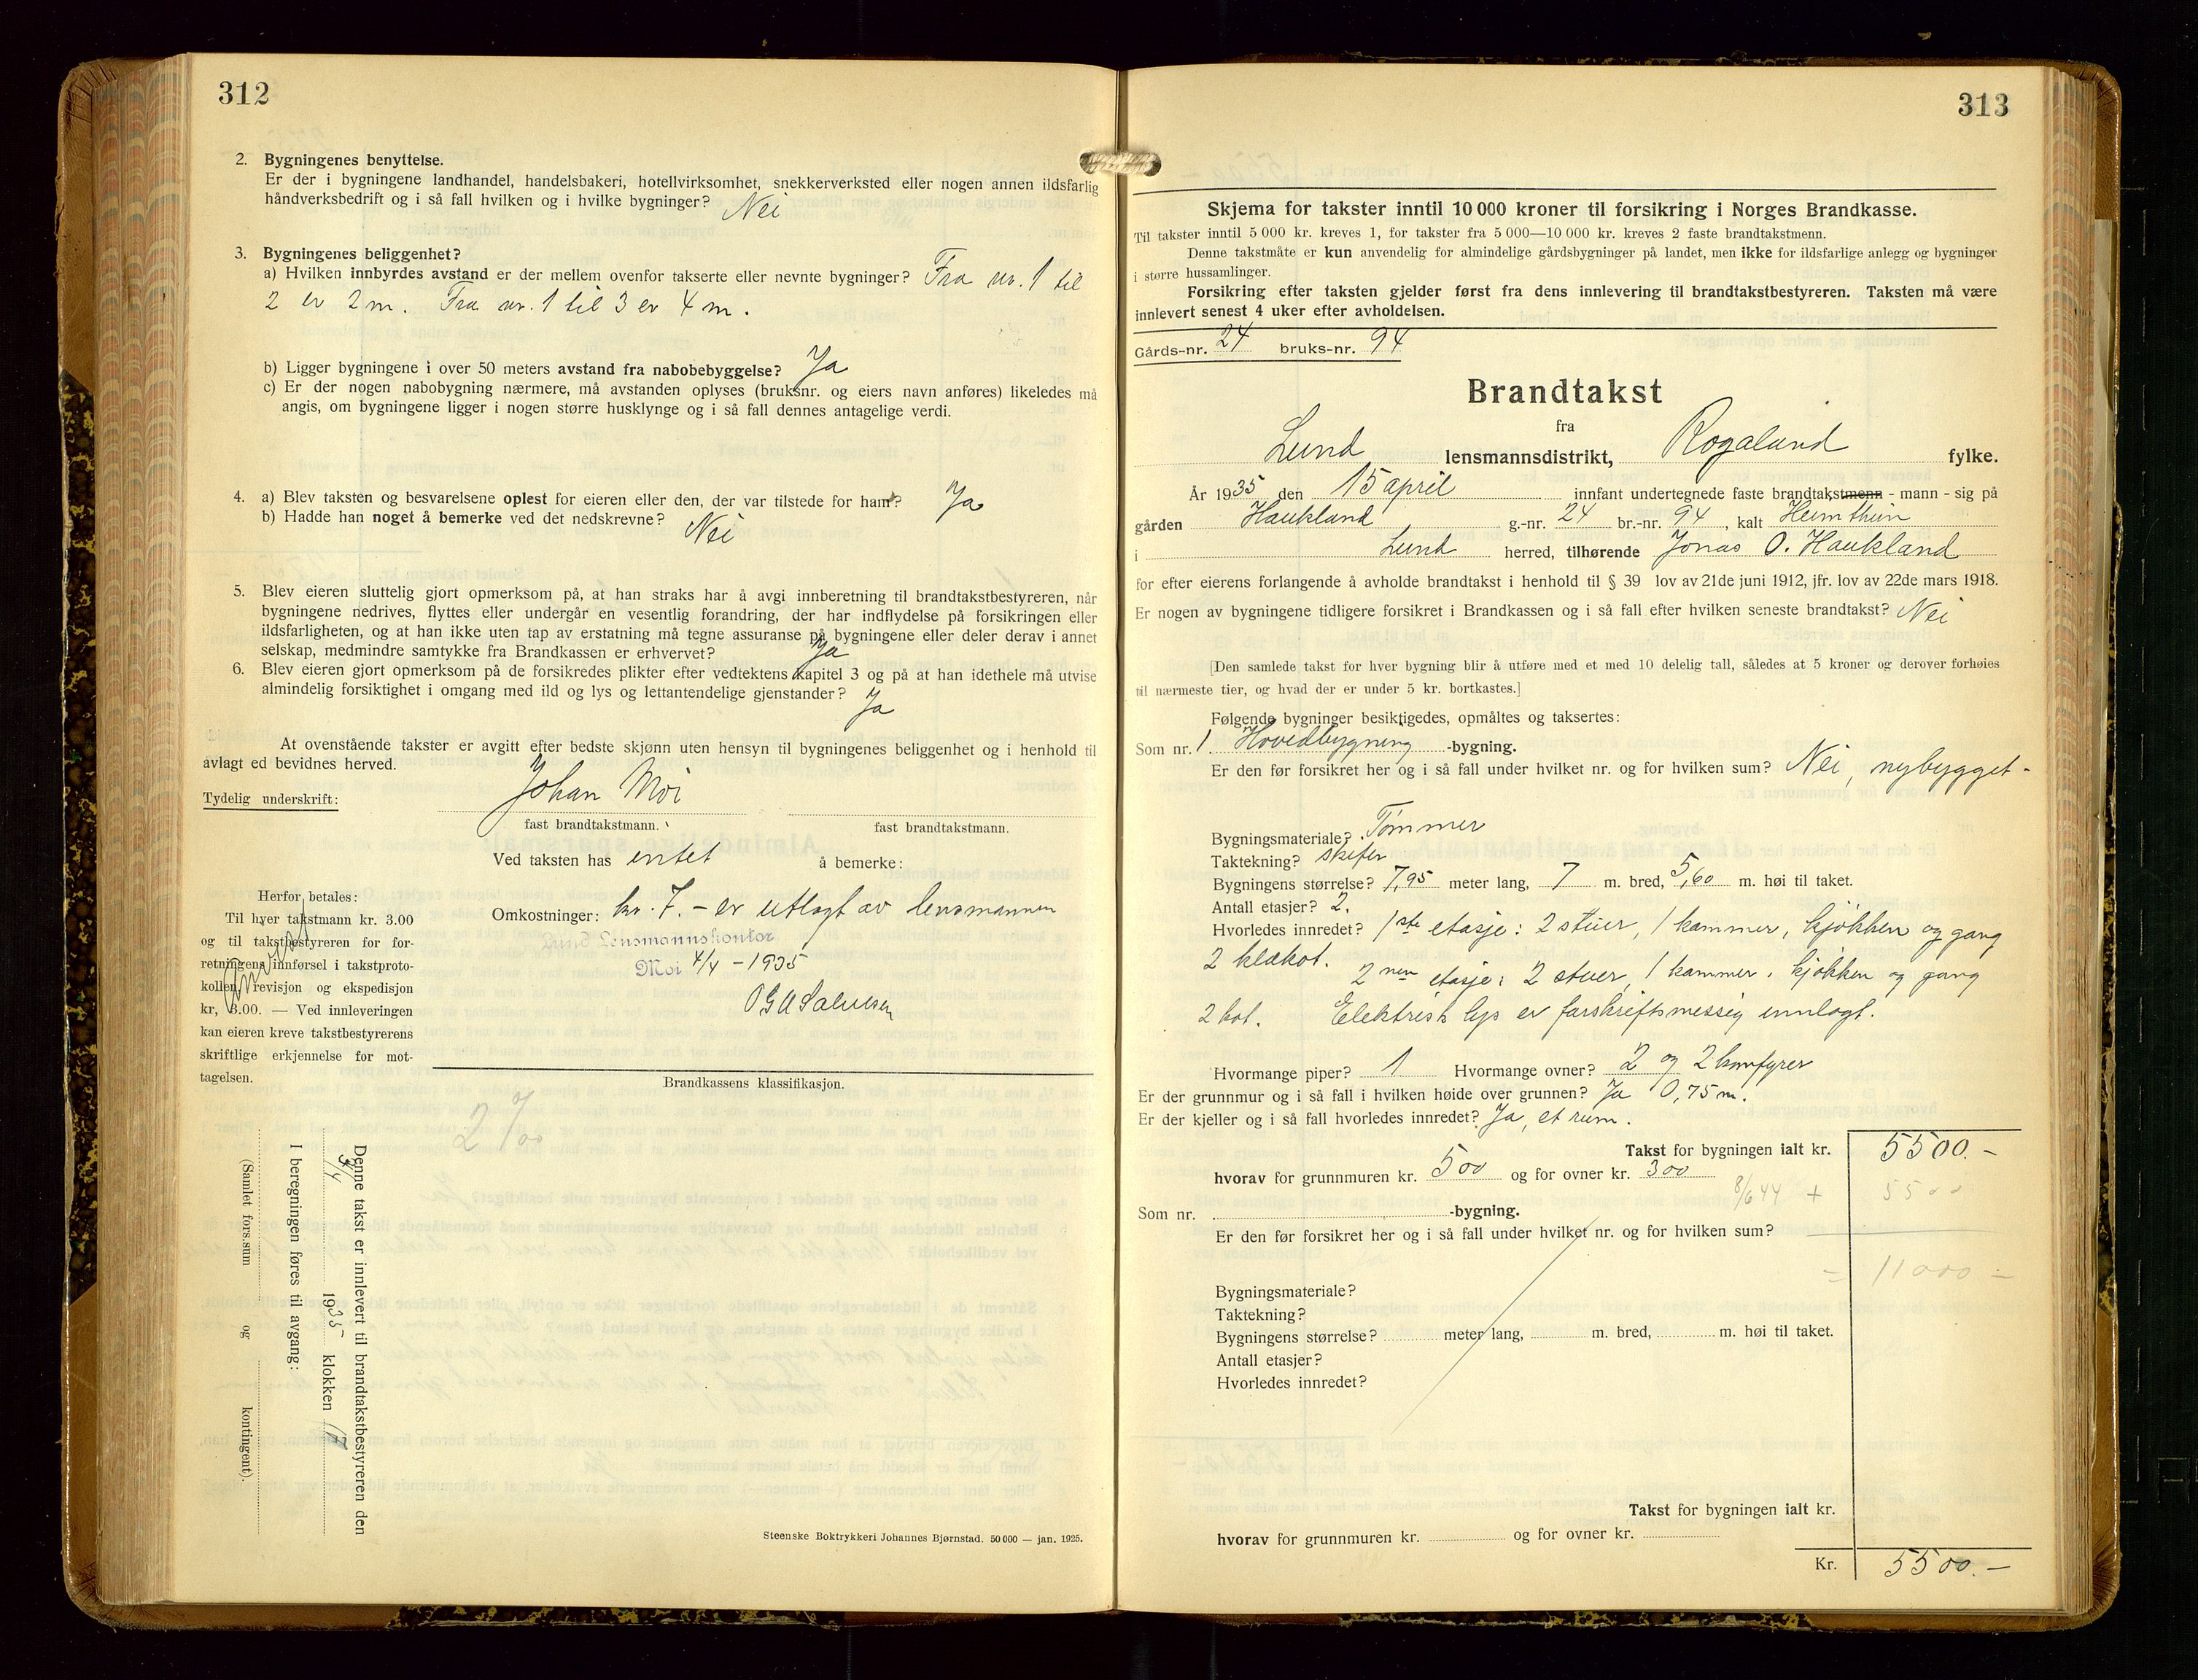 312
2. Bygningenes benyttelse.
Er der i bygningene landhandel, handelsbakeri, hotellvirksomhet, snekkerverksted eller nogen annen ildsfarlig
håndverksbedrift og i så fall hvilken og i hvilke bygninger? Nei
3. Bygningenes beliggenhet?
a) Hvilken innbyrdes avstand er der mellem ovenfor takserte eller nevnte bygninger? Fra nr. 1 til
2 er 2 m. Fra nr. 1 til 3 er 4 m.
b) Ligger bygningene i over 50 meters avstand fra nabobebyggelse? Ja
c) Er der nogen nabobygning nærmere, må avstanden oplyses (bruksnr. og eiers navn anføres) likeledes må
angis, om bygningene ligger i nogen større husklynge og i så fall dennes antagelige verdi.
4. a) Blev taksten og besvarelsene oplest for eieren eller den, der var tilstede for ham? Ja
b) Hadde han noget å bemerke ved det nedskrevne? Nei
5. Blev eieren sluttelig gjort opmerksom på, at han straks har å avgi innberetning til brandtakstbestyreren, når
bygningene nedrives, flyttes eller undergår en vesentlig forandring, der har indflydelse på forsikringen eller
ildsfarligheten, og at han ikke uten tap av erstatning må tegne assuranse på bygningene eller deler derav i annet
selskap, medmindre samtykke fra Brandkassen er erhvervet? Ja
6. Blev eieren gjort opmerksom på de forsikredes plikter efter vedtektens kapitel 3 og på at han idethele må utvise
almindelig forsiktighet i omgang med ild og lys og lettantendelige gjenstander? Ja
At ovenstående takster er avgitt efter bedste skjønn uten hensyn til bygningenes beliggenhet og i henhold til
avlagt ed bevidnes herved.
Tydelig underskrift: Johan Moi
fast brandtakstmann. fast brandtakstmann.
Ved taksten has intet å bemerke:
Omkostninger: kr. 7.- er utlagt av lensmannen
Lund Lensmannskontor
Moi 4/4 - 1935
O G A Salvesen
Herfor betales:
Til hver takstmann kr. 3.00
og til takstbestyreren for for-
retningens innførsel i takstproto-
kollen, revisjon og ekspedisjon
kr, 3.00. — Ved innleveringen
kan eieren kreve takstbestyrerens
skriftlige erkjennelse for mot-
tagelsen.
Brandkassens klassifikasjon.
2 ‰
Denne takst er innlevert til brandtakstbestyreren den
4/4 1935 klokken 17
I beregningen føres til avgang:
(Samlet fors.sum og kontingent).
Steenske Boktrykkeri Johannes Bjørnstad. 50 000 — jan. 1925.
313
Skjema for takster inntil 10 000 kroner til forsikring i Norges Brandkasse.
Til takster inntil 5 000 kr. kreves 1, for takster fra 5 000—10 000 kr. kreves 2 faste brandtakstmenn.
Denne takstmåte er kun anvendelig for almindelige gårdsbygninger på landet, men ikke for ildsfarlige anlegg og bygninger
i større hussamlinger.
Forsikring efter taksten gjelder først fra dens innlevering til brandtakstbestyreren. Taksten må være
innlevert senest 4 uker efter avholdelsen.
Gårds-nr. 24 bruks-nr. 94
Brandtakst
fra
Lund lensmannsdistrikt, Rogaland fylke.
År 1935 den 15 april innfant undertegnede faste brandtakstmenn - mann - sig på
gården Haukland g.-nr. 24 br.-nr. 94, kalt Heimthun
i Lund herred, tilhørende Jonas O. Haukland
for efter eierens forlangende å avholde brandtakst i henhold til § 39 lov av 21de juni 1912, jfr. lov av 22de mars 1918.
Er nogen av bygningene tidligere forsikret i Brandkassen og i så fall efter hvilken seneste brandtakst? Nei
[Den samlede takst for hver bygning blir å utføre med et med 10 delelig tall, således at 5 kroner og derover forhøies
til nærmeste tier, og hvad der er under 5 kr. bortkastes.]
Følgende bygninger besiktigedes, opmåltes og taksertes:
Som nr. 1. Hovedbygning -bygning.
Er den før forsikret her og i så fall under hvilket nr. og for hvilken sum? Nei, nybygget -
Bygningsmateriale? Tømmer
Taktekning? skifer
Bygningens størrelse? 7,95 meter lang, 7 m. bred, 5,60 m. høi til taket.
Antall etasjer? 2.
Hvorledes innredet? 1ste etasje: 2 stuer, 1 kammer, kjøkken og gang
2 klækot. 2nen etasje: 2 stuer, 1 kammer, kjøkken og gang
2 kot. Elektrisk lys er forskriftsmessig innlagt.
Hvormange piper? 1 Hvormange ovner? 2 og 2 komfyrer
Er der grunnmur og i så fall i hvilken høide over grunnen? Ja 0,75 m.
Er der kjeller og i så fall hvorledes innredet? Ja, et rum.
Takst for bygningen ialt kr. 5500.-
hvorav for grunnmuren kr. 500 og for ovner kr. 300
8/6 44 + 5500
Som nr. -bygning.
Er den før forsikret her og i så fall under hvilket nr. og for hvilken sum?
= 11000 -
Bygningsmateriale?
Taktekning?
Bygningens størrelse? meter lang, m. bred, m. høi til taket.
Antall etasjer?
Hvorledes innredet?
Takst for bygningen ialt kr.
hvorav for grunnmuren kr. og for ovner kr.
Kr. 5500.-